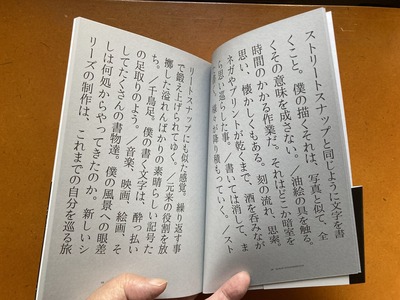 ストリートスナップと同じように文字を書
くこと。僕の描くそれは、写真と似て、全
くその意味を成さない。／油絵の具を触る。
時間のかかる作業だ。それはどこか暗室を
思い、懐かしくもある。刻の流れ、思索、
ネガやプリントが乾くまで、酒を呑みなが
ら思い巡らした事。／書いては消して、ま
が降り積もっていく。／スト
リートスナップにも似た感覚。繰り返す事
で鍛え上げられてゆく。／元来の役割を放
擲した溢れんばかりの素晴らしい記号た
ち。／千鳥足。僕の書く文字は、酔っ払い
の足取りのよう。／音楽、映画、絵画、そ
してたくさんの書物達。僕の風景への眼差
しは何処からやってきたのか。新しいシ
リーズの制作は、これまでの自分を巡る旅